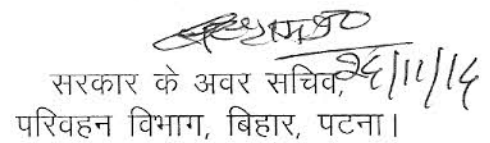 सरकार के अवर सचिव, २६/11/14
परिवहन विभाग, बिहार, पटना।